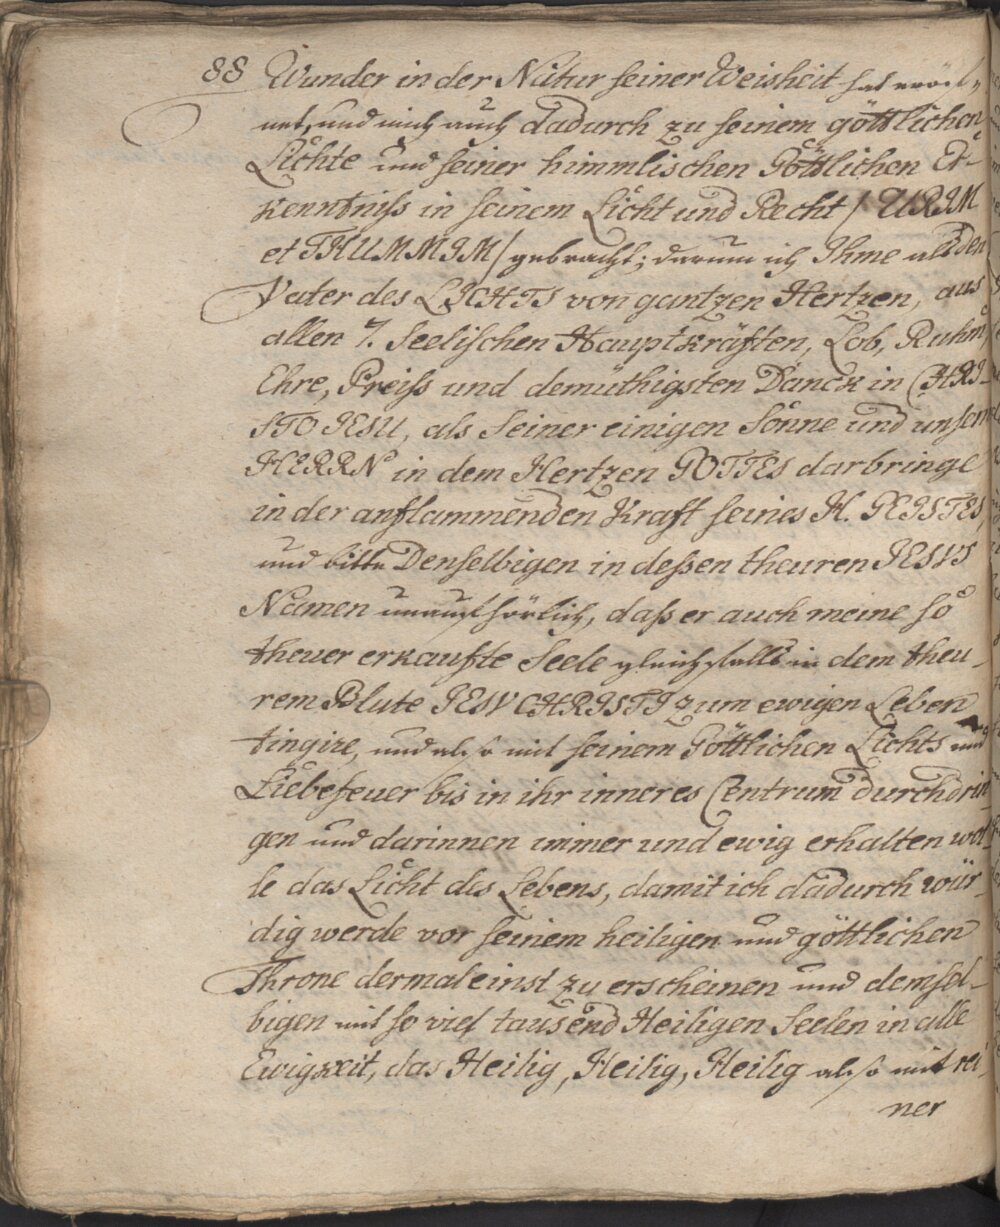 88 Wunder in der Natur seiner Weisheit hat eröf=
net, und mich auch dadurch zu seinem göttlichen
Lichte und seiner himmlischen Göttlichen Er-
kenntniss in seinem Licht und Recht / URIM
et THUMMIM / gebracht; darum ich Ihme als den
Vater des LICHTS von gantzen Hertzen, aus
allen 7. Seelischen Hauptkräften, Lob, Ruhm,
Ehre, Preiss und demüthigsten Danck in CHRI-
STO JESU, als Seiner einigen Sonne und unsern
HERRN in dem Hertzen GOTTES darbringe
in der anflammenden Kraft seines H. GEISTES
und bitte Denselbigen in deßen theuren JESUS
Namen unaufhörlich, daß er auch meine so
theuer erkaufte Seele gleichfalls in dem theu-
rem Blute JESU CHRISTI zum ewigen Leben
tingire, und also mit seinem Göttlichen Lichts und
Liebefeuer bis in ihr inneres Centrum durchdrin-
gen und darinnen immer und ewig erhalten wol-
le das Licht des Lebens, damit ich dadurch wür-
dig werde vor seinem heiligen und göttlichen
Throne dermaleinst zu erscheinen und demsel-
bigen mit so viel tausend Heiligen Seelen in alle
Ewigkeit, das Heilig, Heilig, Heilig also mit rei-
ner